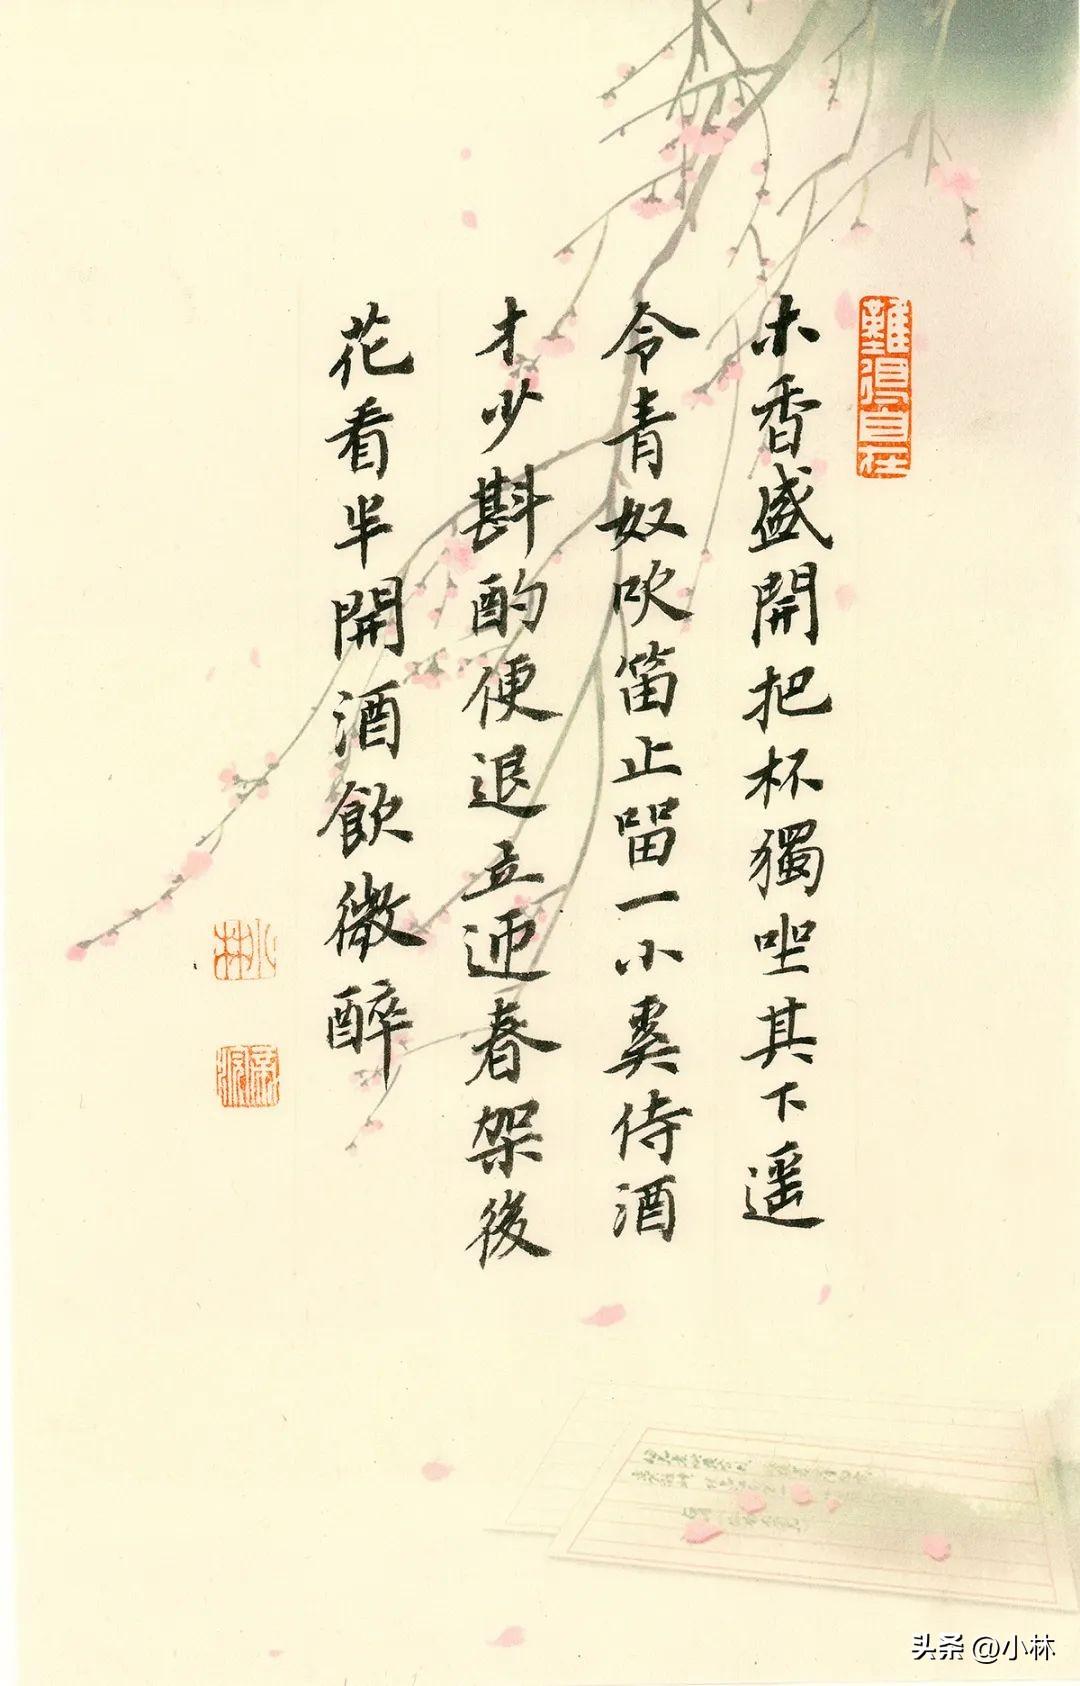 難得自在
木香盛開把杯獨坐其下遥
令青奴吹笛止留一小奚侍酒
才少斟酌便退立迎春架後
花看半開酒飲微醉
小林
头条 @小林